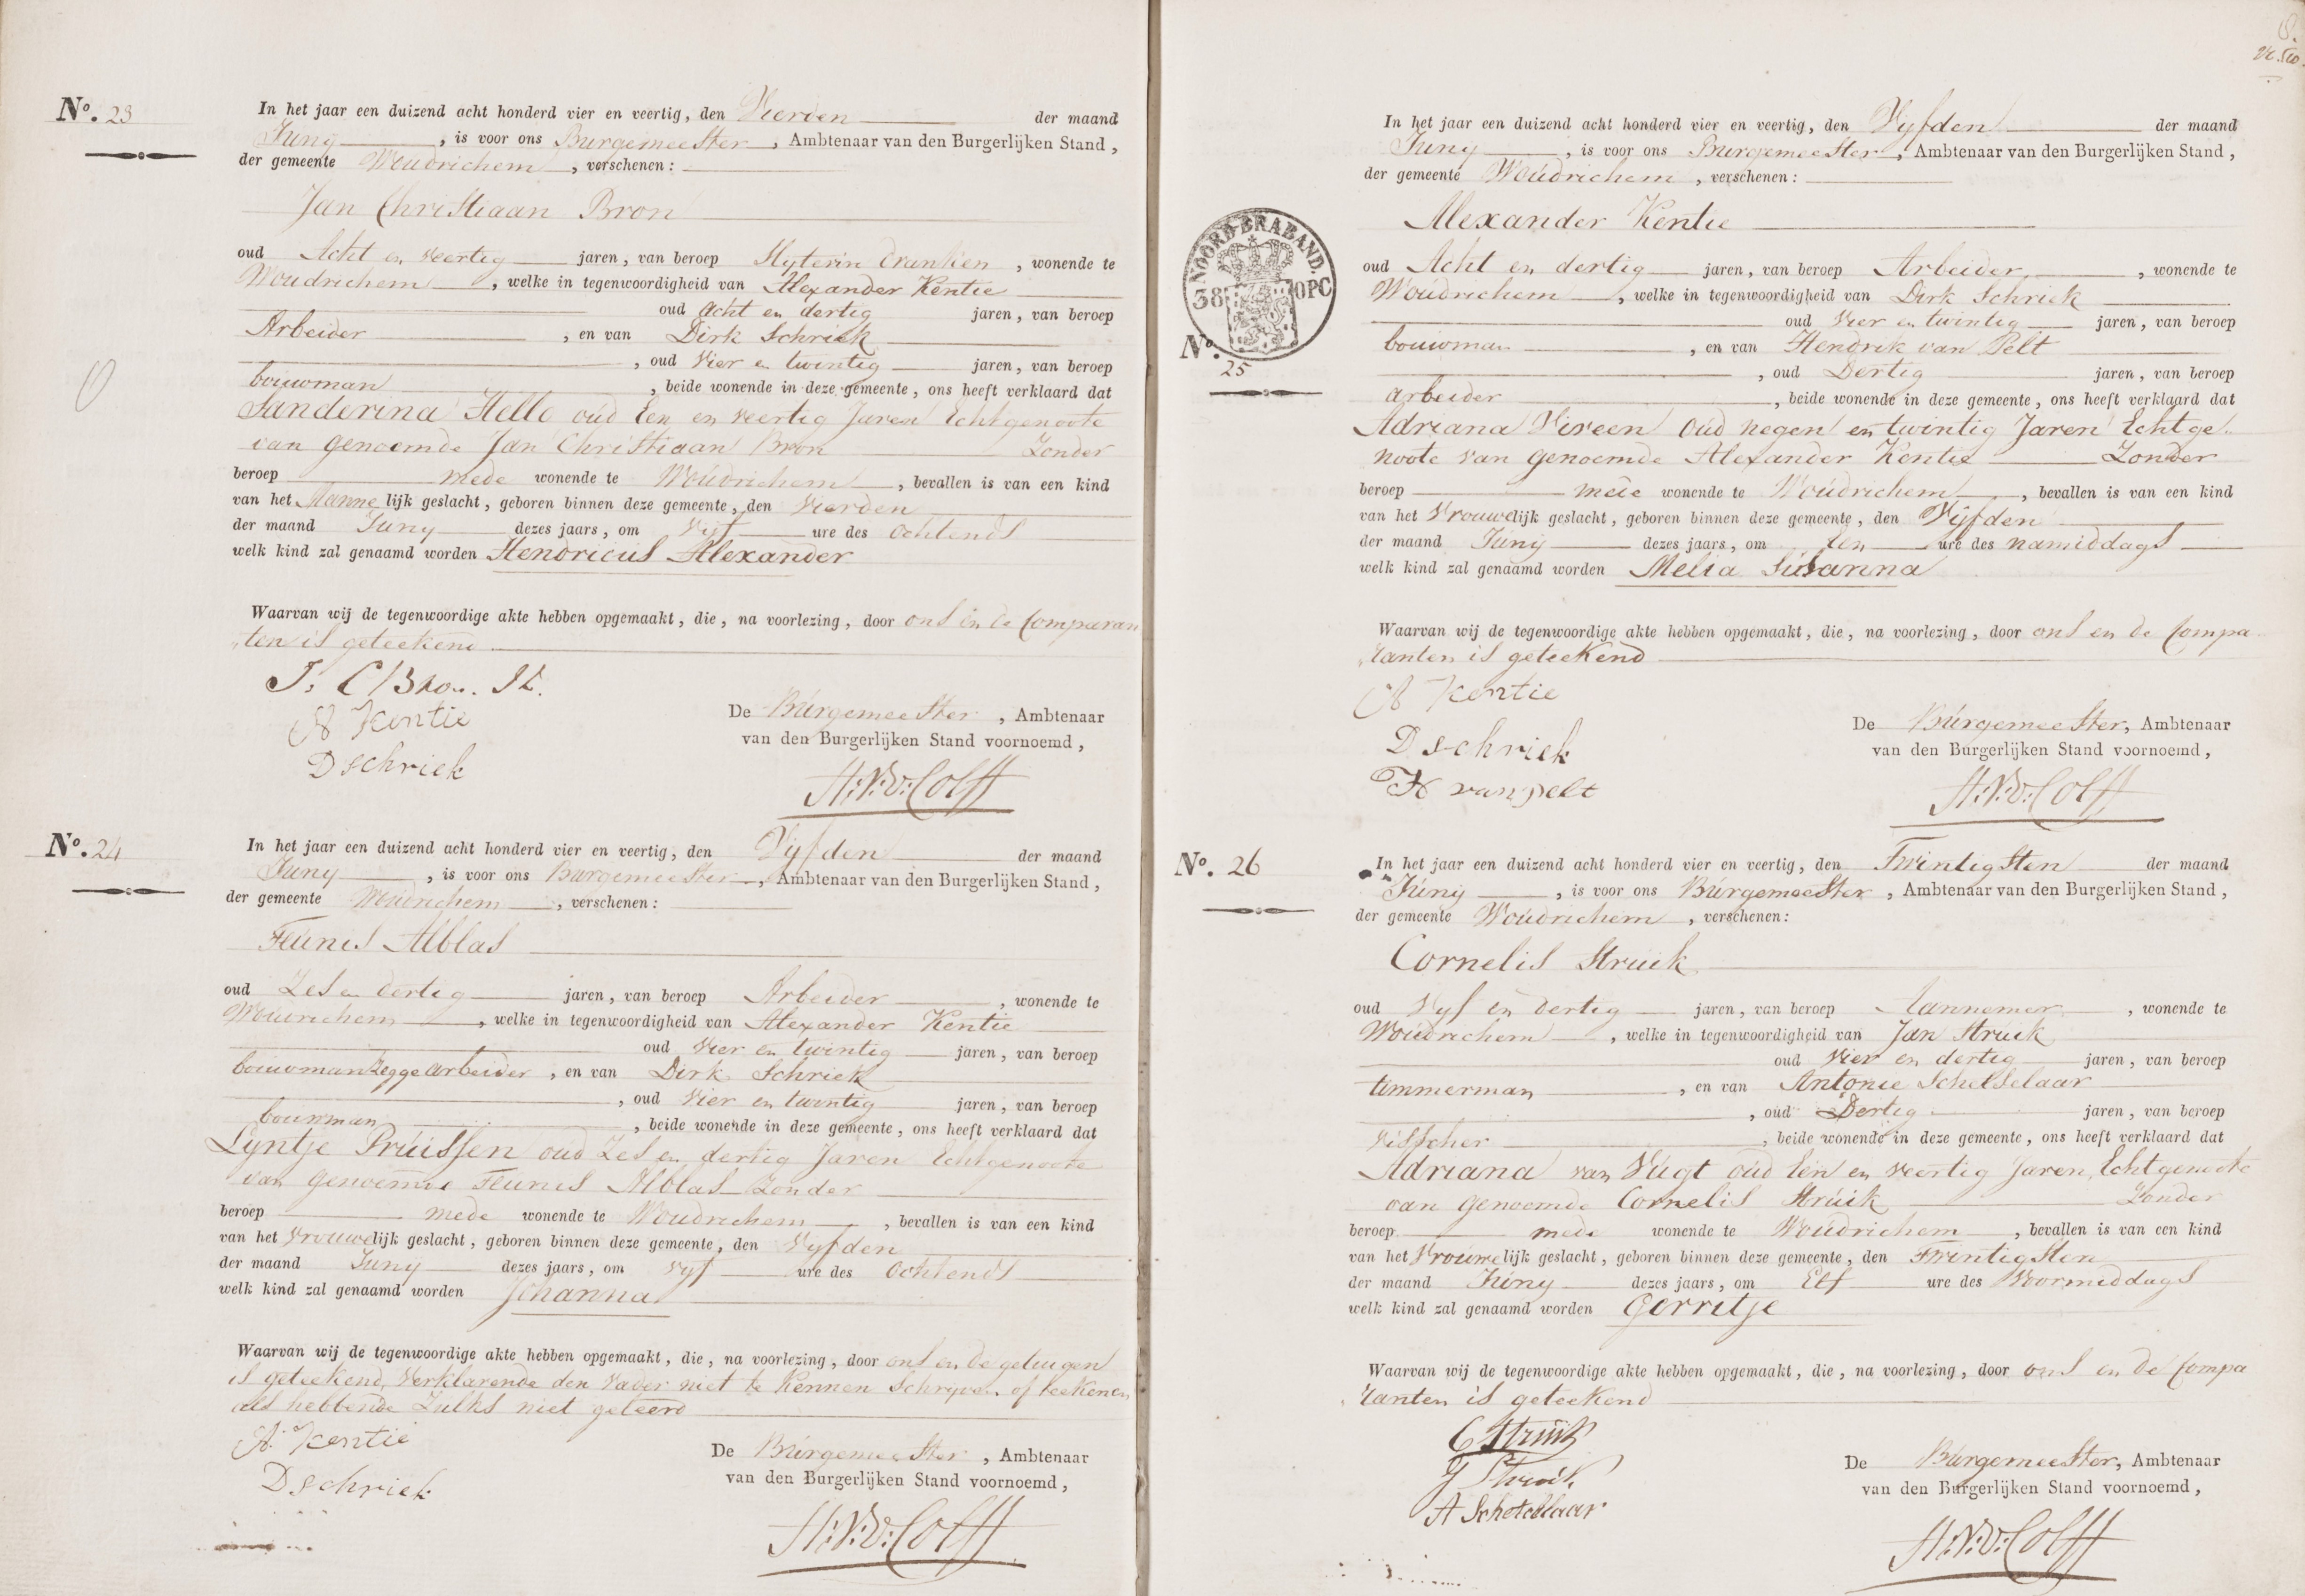 No. 23
In het jaar een duizend acht honderd vier en veertig, den Vierden der maand
Juny, is voor ons Burgemeester, Ambtenaar van den Burgerlijken Stand,
der gemeente Woudrichem, verschenen:
Jan Christiaan Bron
oud Acht en veertig jaren, van beroep Slyter in dranken, wonende te
Woudrichem, welke in tegenwoordigheid van Alexander Kentie
oud Acht en dertig jaren, van beroep
Arbeider, en van Dirk Schriek
, oud Vier en twintig jaren, van beroep
bouwman, beide wonende in deze gemeente, ons heeft verklaard dat
Sanderina Stello oud Een en veertig Jaren Echtgenoote
van genoemde Jan Christiaan Bron Zonder
beroep mede wonende te Woudrichem, bevallen is van een kind
van het Mannelijk geslacht, geboren binnen deze gemeente, den Vierden
der maand Juny dezes jaars, om Vyf ure des Ochtends
welk kind zal genaamd worden Hendricus Alexander
Waarvan wij de tegenwoordige akte hebben opgemaakt, die, na voorlezing, door ons en de Comparan
ten is geteekend
J. C Bron.
A Kentie
D schriek
De Burgemeester, Ambtenaar
van den Burgerlijken Stand voornoemd,
H:N:V:D:Colff
No. 24
In het jaar een duizend acht honderd vier en veertig, den Vyfden der maand
Juny, is voor ons Burgemeester, Ambtenaar van den Burgerlijken Stand,
der gemeente Woudrichem, verschenen:
Teunis Alblas
oud Zes en dertig jaren, van beroep Arbeider, wonende te
Woudrichem, welke in tegenwoordigheid van Alexander Kentie
oud Vier en twintig jaren, van beroep
bouwman Zegge arbeider, en van Dirk Schriek
, oud Vier en twintig jaren, van beroep
bouwman, beide wonende in deze gemeente, ons heeft verklaard dat
Lyntje Pruissen oud Zes en dertig Jaren Echtgenoote
van genoemde Teunis Alblas Zonder
beroep mede wonende te Woudrichem, bevallen is van een kind
van het Vrouwelijk geslacht, geboren binnen deze gemeente, den Vyfden
der maand Juny dezes jaars, om Vyf ure des Ochtends
welk kind zal genaamd worden Johanna
Waarvan wij de tegenwoordige akte hebben opgemaakt, die, na voorlezing, door ons en de getuigen
is geteekend, Verklarende den Vader niet te Kennen Schryven of teekenen
als hebbende Zulks niet geleerd
A. Kentie
D schriek
De Burgemeester, Ambtenaar
van den Burgerlijken Stand voornoemd,
H:N:V:D:Colff
NOORD-BRABAND.
38 OPC
No. 25
In het jaar een duizend acht honderd vier en veertig, den Vyfden der maand
Juny, is voor ons Burgemeester, Ambtenaar van den Burgerlijken Stand,
der gemeente Woudrichem, verschenen:
Alexander Kentie
oud Acht en dertig jaren, van beroep Arbeider, wonende te
Woudrichem, welke in tegenwoordigheid van Dirk Schriek
oud Vier en twintig jaren, van beroep
bouwman, en van Hendrik van Pelt
, oud Dertig jaren, van beroep
arbeider, beide wonende in deze gemeente, ons heeft verklaard dat
Adriana Vireen Oud negen en twintig Jaren Echtge
noote van genoemde Alexander Kentie Zonder
beroep mede wonende te Woudrichem, bevallen is van een kind
van het Vrouwelijk geslacht, geboren binnen deze gemeente, den Vyfden
der maand Juny dezes jaars, om Een ure des namiddags
welk kind zal genaamd worden Melia Susanna
Waarvan wij de tegenwoordige akte hebben opgemaakt, die, na voorlezing, door ons en de Compa
ranten is geteekend
A Kentie
D schriek
H van pelt
De Burgemeester, Ambtenaar
van den Burgerlijken Stand voornoemd,
H:N:V:D:Colff
No. 26
In het jaar een duizend acht honderd vier en veertig, den Twintigsten der maand
Juny, is voor ons Burgemeester, Ambtenaar van den Burgerlijken Stand,
der gemeente Woudrichem, verschenen:
Cornelis Struik
oud Vyf en dertig jaren, van beroep Aannemer, wonende te
Woudrichem, welke in tegenwoordigheid van Jan Struik
oud Vier en dertig jaren, van beroep
timmerman, en van Antonie Schetselaar
, oud Dertig jaren, van beroep
Visscher, beide wonende in deze gemeente, ons heeft verklaard dat
Adriana van Vugt oud Een en veertig Jaren, Echtgenoote
van genoemde Cornelis Struik Zonder
beroep mede wonende te Woudrichem, bevallen is van een kind
van het Vrouwelijk geslacht, geboren binnen deze gemeente, den Twintigsten
der maand Juny dezes jaars, om Elf ure des Voormiddags
welk kind zal genaamd worden Gerritje
Waarvan wij de tegenwoordige akte hebben opgemaakt, die, na voorlezing, door ons en de Compa
ranten is geteekend
C Struik
J Struik
A Schetselaar
De Burgemeester, Ambtenaar
van den Burgerlijken Stand voornoemd,
H:N:V:D:Colff